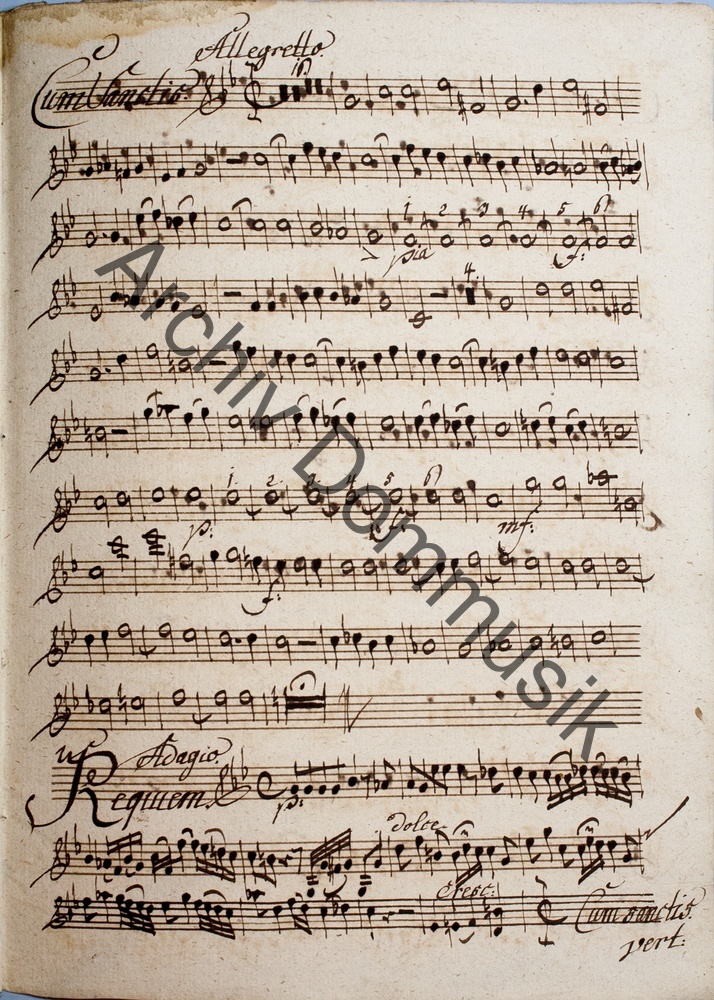 Allegretto.
Cum Sanctis.
16
1 2 3 4 5 6
pia f:
4.
1. 2. 3. 4 5 6
p: f: mf:
f:
Adagio.
Requiem.
p:
dolce.
Cresc:
Cum sanctis.
vert:
Archiv Dommusik